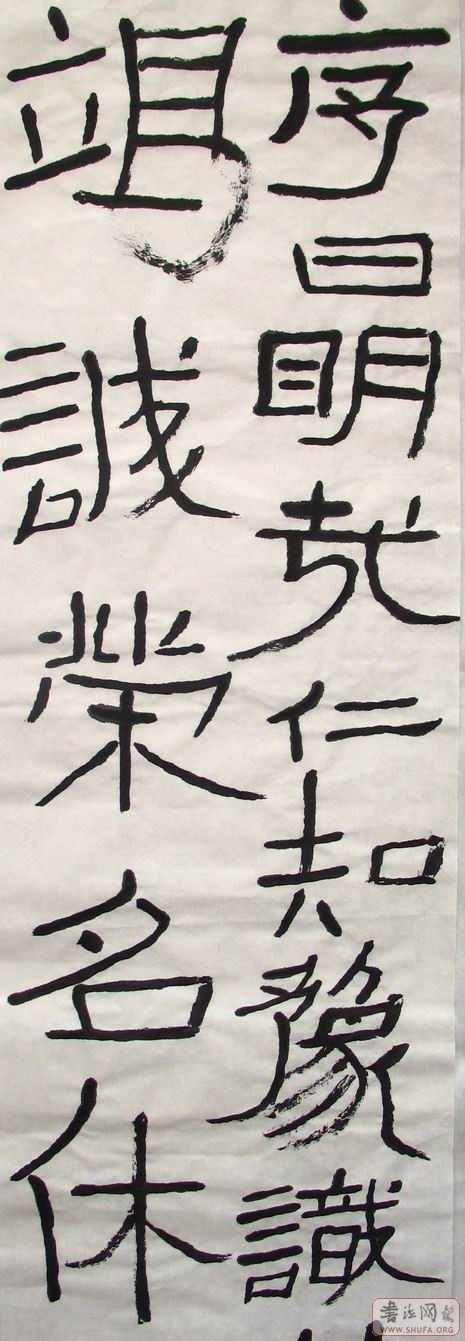 序曰明哉仁知豫識
竭誠榮名休
WWW.SHUFA.ORG